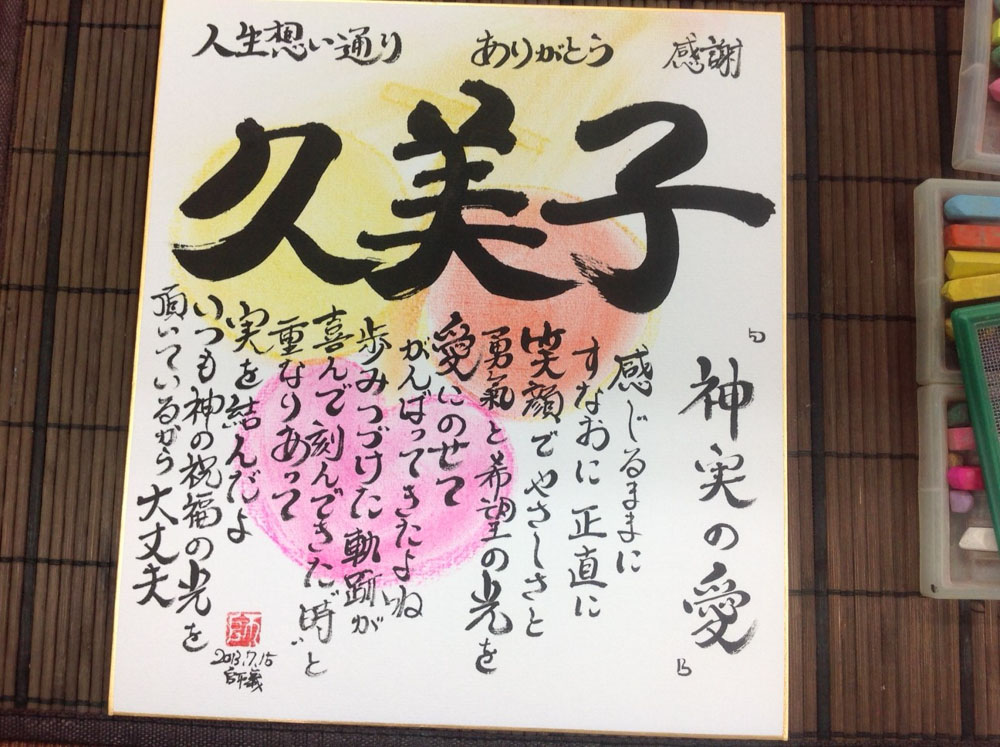 人生想い通り
ありがとう
感謝
久美子
『神実の愛』
感じるままに
すなおに正直に
笑顔でやさしさと
勇氣と希望の光を
愛にのせて
がんばってきたよね
歩みつづけた軌跡が
喜んで刻んできた"時"と
重なりあって
実を結んだよ
いつも神の祝福の光を
頂いているから大丈夫
2013.7.15